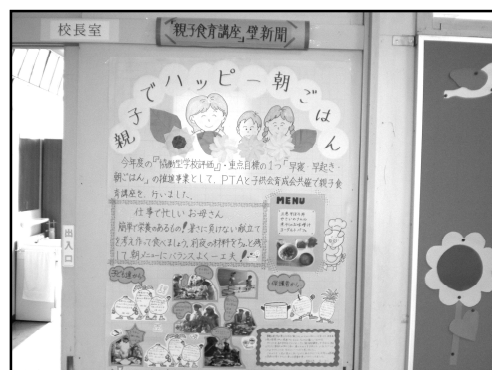 校長室
「親子食育講座」壁新聞
親子でハッピー朝ごはん
今年度の「協働型学校評価」・重点目標の1つ「早寝・早起き・
朝ごはん」の推進事業として、PTAと子供会育成会共催で親子食
育講座を、行いました。
仕事で忙しいお母さん
簡単で栄養のあるもの!暑さに負けない献立て
を考え作って食べましょう。前夜の材料をちょっと残
して朝メニューにバランスよく一工夫!
MENU
出入口
子ども達から
保護者から